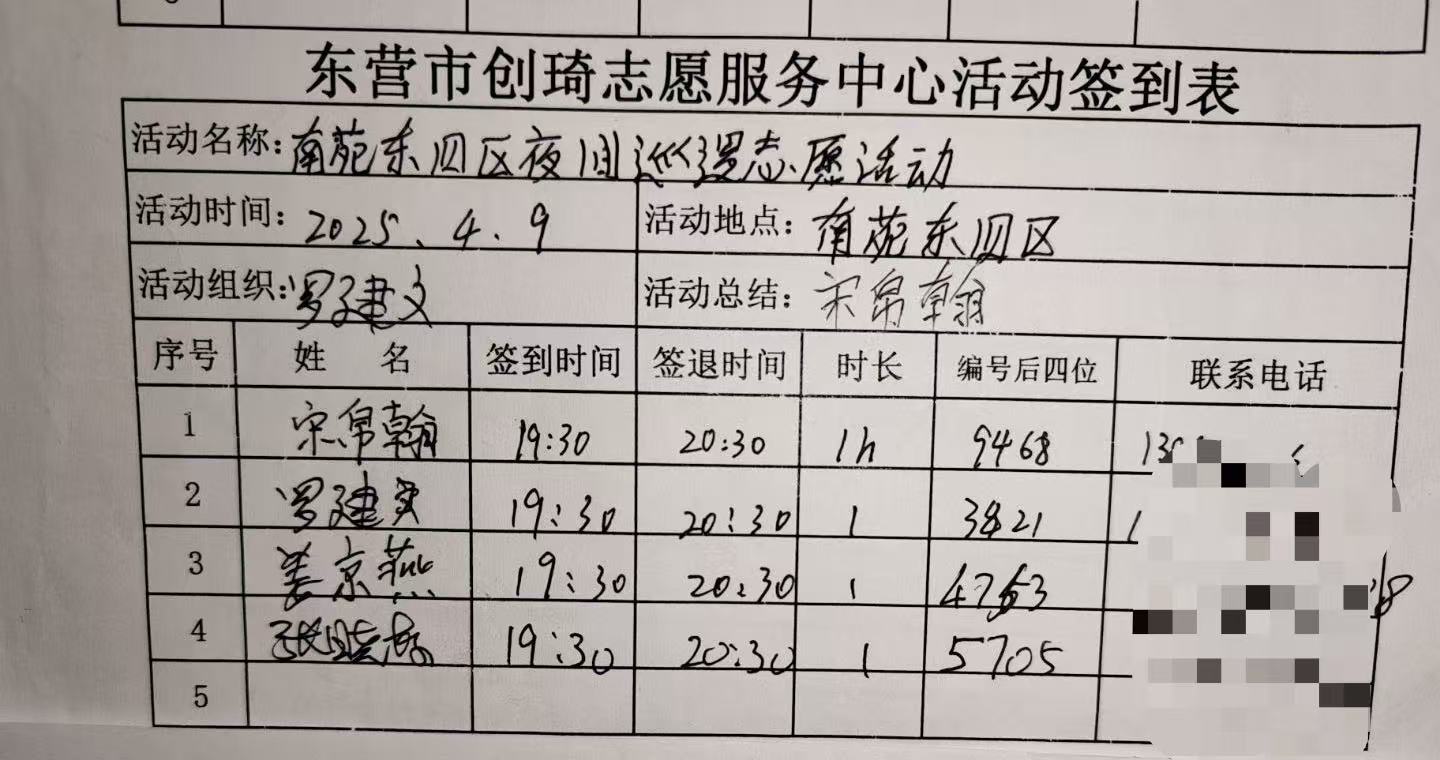 东营市创琦志愿服务中心活动签到表
活动名称：南苑东四区夜间巡逻志愿活动
活动时间：2025、4、9 活动地点：南苑东四区
活动组织：罗建文 活动总结：宋帛翰
序号 姓 名 签到时间 签退时间 时长 编号后四位 联系电话
1 宋帛翰 19:30 20:30 1h 9468
2 罗建 19:30 20:30 1 3821
3 姜京燕 19:30 20:30 1 4763
4 张晓 19:30 20:30 1 5705
5